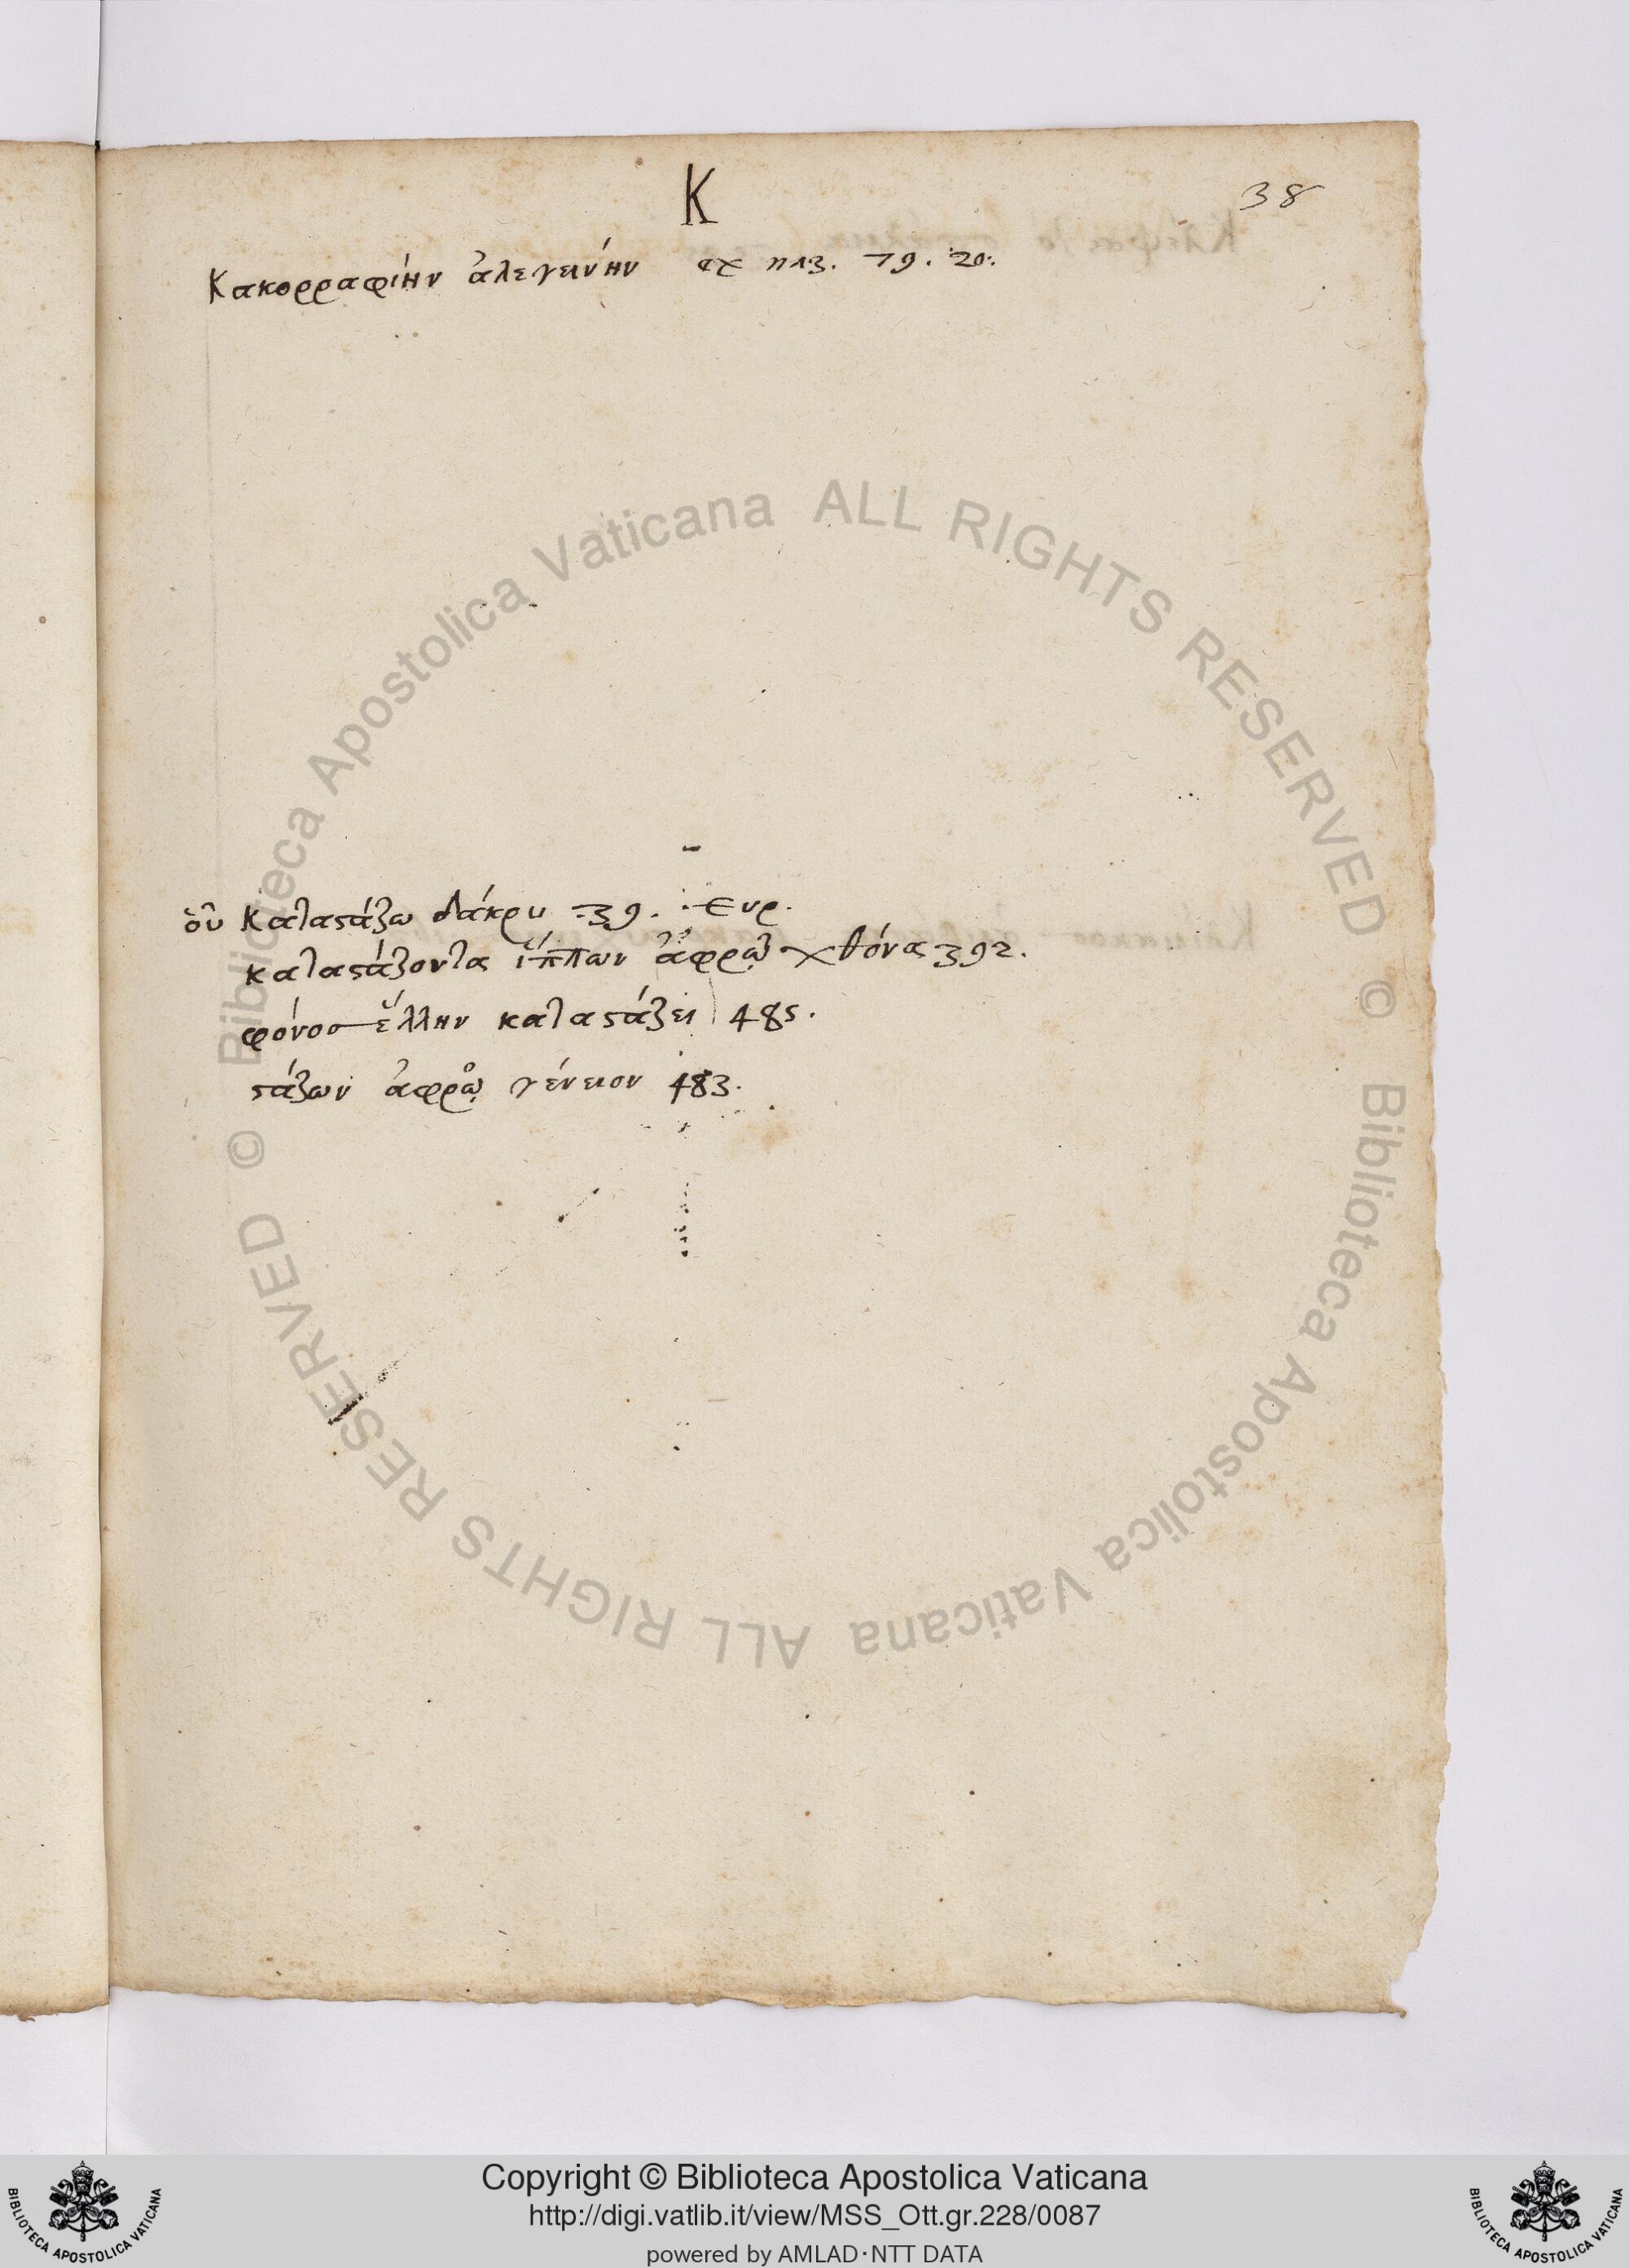 Κ
38
Κακορραφίην ἀλεγεινήν 79. 20.
ὃν Καταστάζω δάκρυ 39. Ευρ.
καταστάζοντα ἵππων ἀφρῷ χθόνα 392.
φόνος ἕλλην καταστάζει 485.
στάζων ἀφρῷ γένειον 483.
© Biblioteca Apostolica Vaticana ALL RIGHTS RESERVED
© Biblioteca Apostolica Vaticana ALL RIGHTS RESERVED
Copyright © Biblioteca Apostolica Vaticana
http://digi.vatlib.it/view/MSS_Ott.gr.228/0087
powered by AMLAD·NTT DATA
BIBLIOTECA APOSTOLICA VATICANA
BIBLIOTECA APOSTOLICA VATICANA